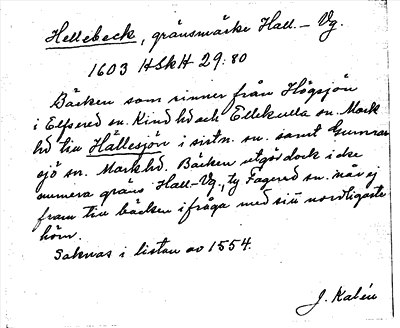 Hellebeck, gränsmärke Hall. – Vg.
1603 HSkH 29:80
Bäcken som rinner från Högsjön
i Elfsered sn. Kind hd och Ellekulla sn. Mark
hd till Hällesjön i sistn. sn. samt Gunnar
sjö sn. Mark hd. Bäcken utgör dock icke
numera gräns Hall–Vg., ty Fagered sn. når ej
fram till bäcken ifråga med sitt nordligaste
hörn.
Saknas i listan av 1554.
J. Kalén